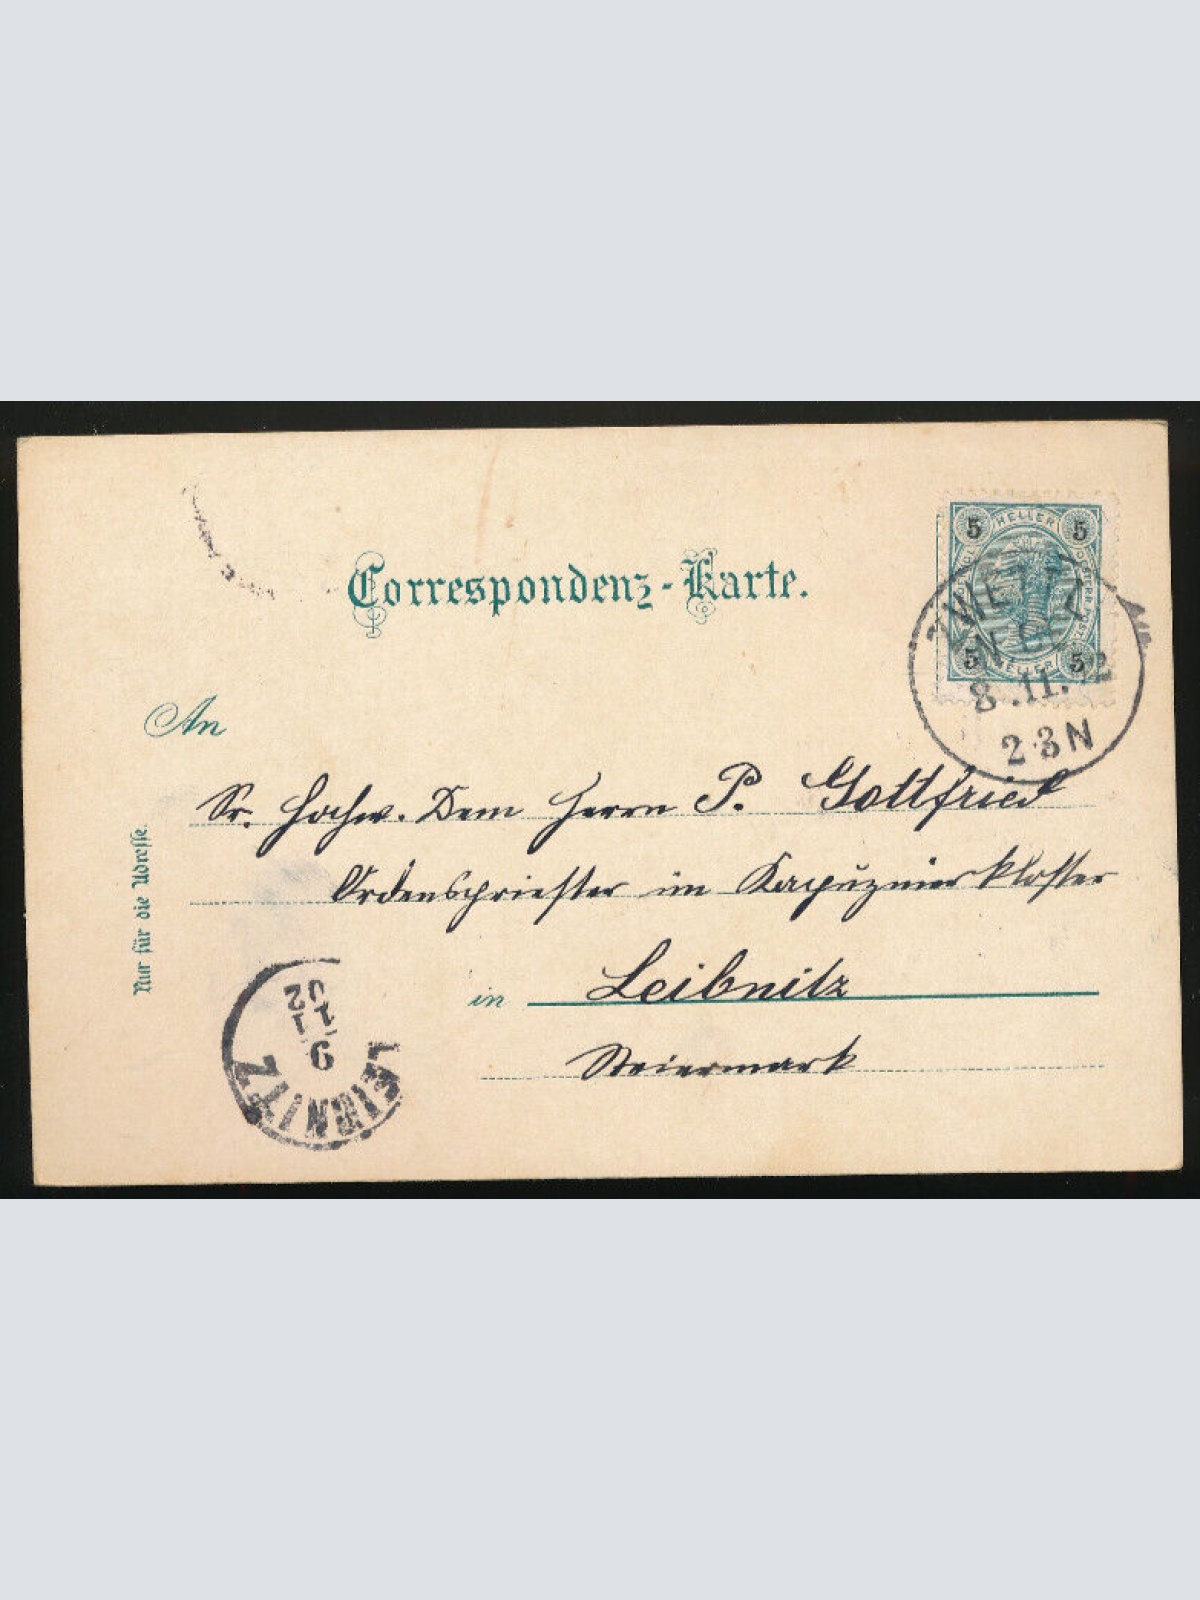 Correspondenz-Karte.
5 HELLER 5
5 HELLER 5
ZWETTL
N.Ö.
8.11.02
2-3N
An
Sr. Hochw. Dem Herrn P. Gottfried
Ordenspriester im Kapuzinerkloster
in Leibnitz
Steiermark
Nur für die Adresse.
LEIBNITZ
9.11.
02